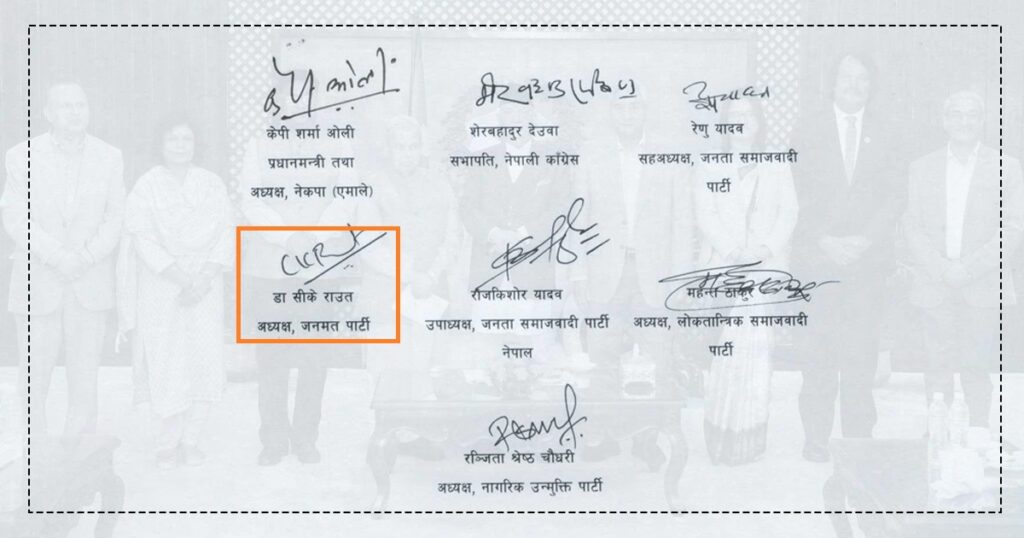 केपी शर्मा ओली
प्रधानमन्त्री तथा
अध्यक्ष, नेकपा (एमाले)
शेरबहादुर देउवा
सभापति, नेपाली काँग्रेस
रेणु यादव
सहअध्यक्ष, जनता समाजवादी
पार्टी
डा सीके राउत
अध्यक्ष, जनमत पार्टी
राजकिशोर यादव
उपाध्यक्ष, जनता समाजवादी पार्टी
नेपाल
महन्त ठाकुर
अध्यक्ष, लोकतान्त्रिक समाजवादी
पार्टी
रञ्जिता श्रेष्ठ चौधरी
अध्यक्ष, नागरिक उन्मुक्ति पार्टी